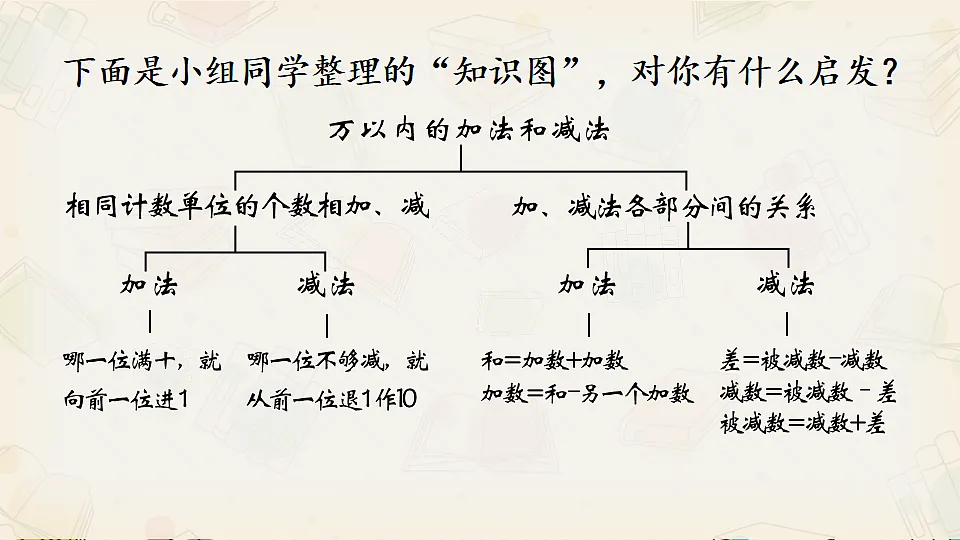 下面是小组同学整理的“知识图”，对你有什么启发？
万以内的加法和减法
相同计数单位的个数相加、减
加、减法各部分间的关系
加法
减法
加法
减法
哪一位满十，就
向前一位进1
哪一位不够减，就
从前一位退1作10
和=加数+加数
加数=和-另一个加数
差=被减数-减数
减数=被减数-差
被减数=减数+差